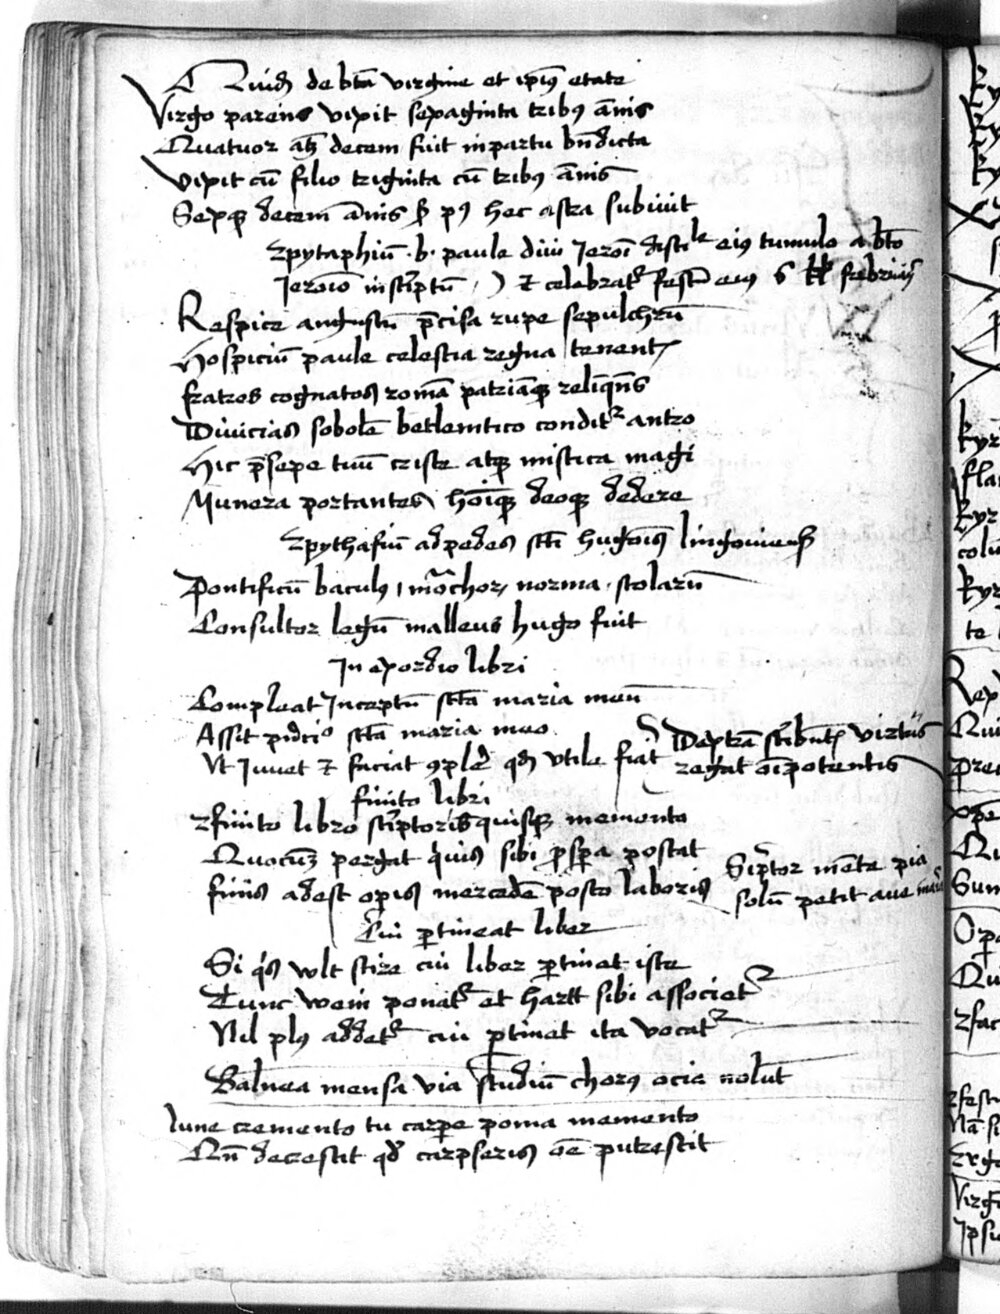 Ouidius de bta virgine et ipius etate
Virgo parens vixit sexaginta tribus annis
Quatuor atque decem fuit in partu bndicta
vixit cu filio triginta cu tribus annis
Sexque decem annis et pus hec astra subiuit
Epytaphiu .b. paule diui Jeroi disciple eius tumulo a bto
Jeroio inscriptu et celebratur festu eius 6 kl februarij
Respice angustu precisa rupe sepulchru
Hospiciu paule celestia regna tenentis
fratres cognatos roma patriamque relinques
Diuicias sobole betlemitico conditur antro
Hic presepe tuu criste atque mistica magi
Munera portantes hoique deoque dedere
Epythafiu ad pedes sti hugois lingoniens
Pontificu baculus, moachorum norma, scolaru
Consultor legu malleus hugo fuit
In exordio libri
Compleat Inceptu sta maria meu
Assit principio sta maria meo
Dextra scribentis virtus
Vt Juuet et faciat complere quod vtile fiat
regat oipotentis
finito libri
Efinito libro scriptoris quisque memento
Quocumque pergat quiuis sibi prospera poscat
Scriptor mente pia
finis adest opis mercede posco laboris
solu petit aue maria
Cui pertineat liber
Si quis wlt scire cui liber pertinet iste
Tunc wein ponatur et hartt sibi associetur
Nil plus addetur cui pertinet ita vocatur
Balnea mensa via studiu chorus ocia nolut
lune cremento tu carpe poma memento
Qum decrescit quod carpseris oe putrescit